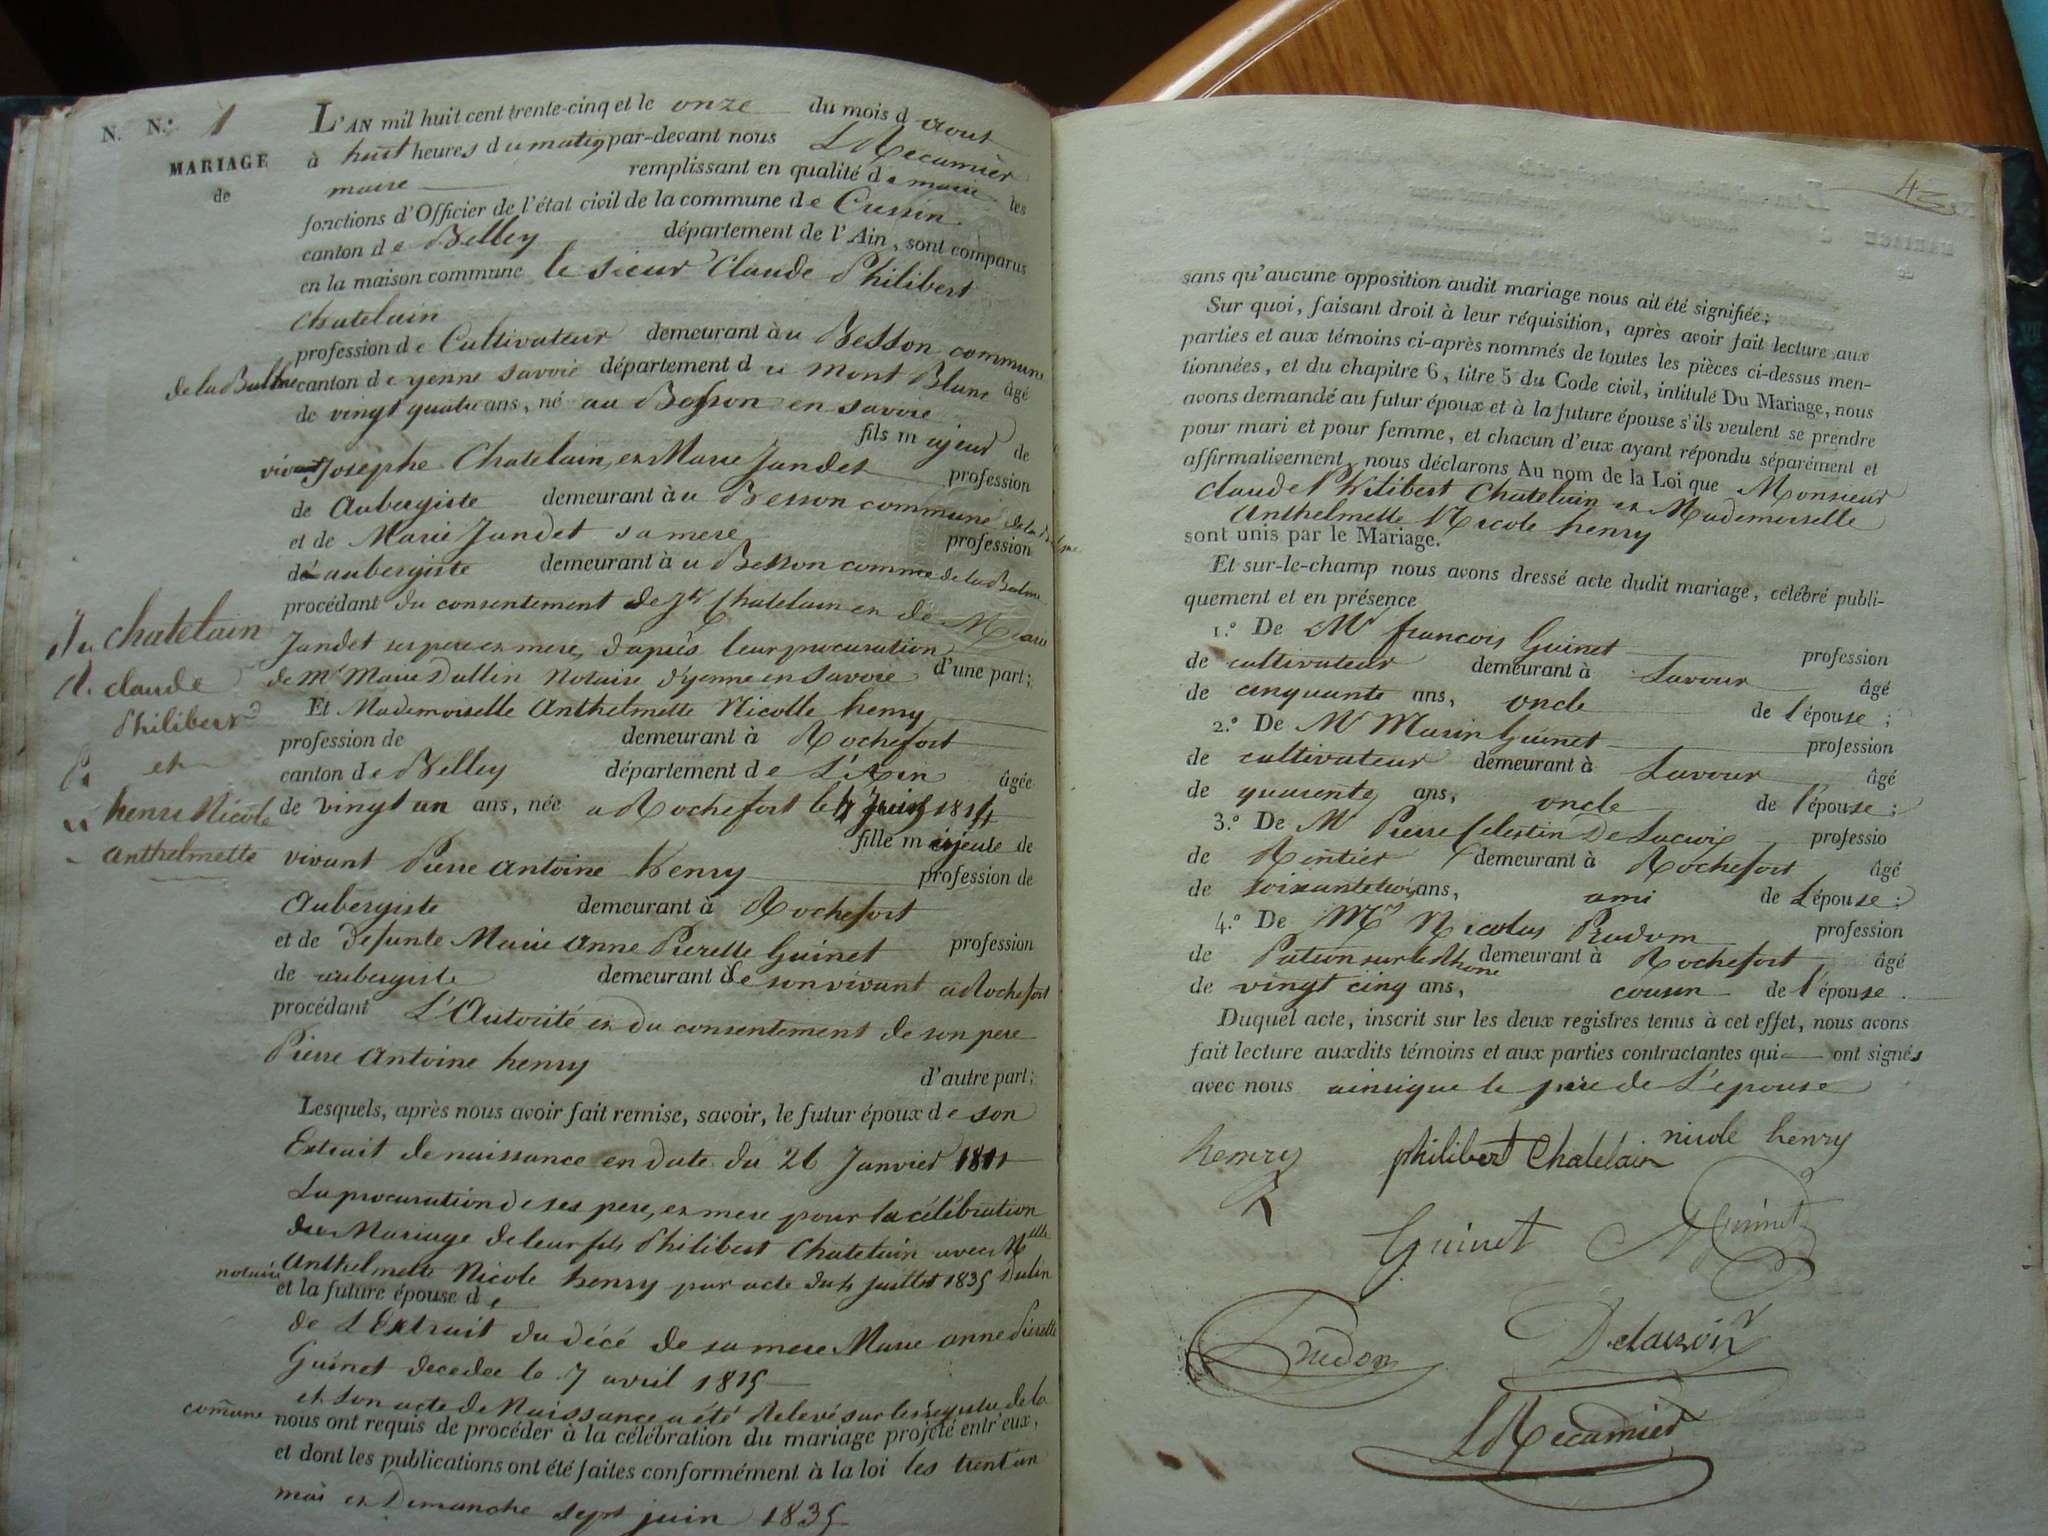 N. N.° 1
MARIAGE
de
du chatelain
claude
Philibert
et
henri Nicole
anthelmette
L'AN mil huit cent trente-cinq et le onze du mois d'aout
à huit heures du matin par-devant nous L Récamier
maire remplissant en qualité de maire les
fonctions d'Officier de l'état civil de la commune de Cussin
canton de Belley département de l'Ain, sont comparus
en la maison commune le sieur Claude Philibert
Chatelain
profession de Cultivateur demeurant à u Besson commune
de la Balme canton d yenne savoie département du Mont Blanc âgé
de vingt quatre ans, né au Besson en savoie
fils majeur de
vivant Josephe Chatelain, et Marie Jandet profession
de Aubergiste demeurant à u Besson commune de la Balme
et de Marie Jandet sa mere profession
de aubergiste demeurant à u Besson comme de la Balme
procédant du consentement de jh Chatelain et de Marie
Jandet ses pere et mere, d'après leur procuration
de Mr Marie Dullin Notaire d'yenne en Savoie d'une part;
Et Mademoiselle Anthelmette Nicolle henry
profession de demeurant à Rochefort
canton de Belley département de L'Ain âgée
de vingt un ans, née a Rochefort le 4 Juin 1814
fille majeure de
vivant Pierre Antoine henry profession de
Aubergiste demeurant à Rochefort
et de defunte Marie Anne Pierette Guinet profession
de aubergiste demeurant de son vivant a Rochefort
procédant L'Autorité et du consentement de son pere
Pierre Antoine henry
d'autre part;
Lesquels, après nous avoir fait remise, savoir, le futur époux de son
Extrait de naissance en date du 26 Janvier 1811
La procuration de ses pere, et mere pour la célébration
du Mariage de leur fils Philibert Chatelain avec Mlle
Anthelmette Nicole henry par acte du 4 juillet 1835 Dulin
notaire et la future épouse d e
de L'Extrait du décé de sa mere Marie anne Pierette
Guinet decedee le 7 avril 1815
et son acte de Naissance a été Relevé sur les registre de la
commune nous ont requis de procéder à la célébration du mariage projeté entr'eux,
et dont les publications ont été faites conformément à la loi les trent un
mai et Dimanche sept juin 1835
sans qu'aucune opposition audit mariage nous ait été signifiée;
Sur quoi, faisant droit à leur réquisition, après avoir fait lecture aux
parties et aux témoins ci-après nommés de toutes les pièces ci-dessus men-
tionnées, et du chapitre 6, titre 5 du Code civil, intitulé Du Mariage, nous
avons demandé au futur époux et à la future épouse s'ils veulent se prendre
pour mari et pour femme, et chacun d'eux ayant répondu séparément et
affirmativement, nous déclarons Au nom de la Loi que Monsieur
Claude Philibert Chatelain et Mademoiselle
Anthelmette Nicole henry
sont unis par le Mariage.
Et sur-le-champ nous avons dressé acte dudit mariage, célébré publi-
quement et en présence
1.° De Mr francois Guinet profession
de cultivateur demeurant à Lavour âgé
de cinquante ans, oncle de l'épouse;
2.° De Mr Marin Guinet profession
de cultivateur demeurant à Lavour âgé
de quarente ans, oncle de l'épouse;
3.° De Mr Pierre Celestin De Lacroix professio
de Rentier demeurant à Rochefort âgé
de soixante trois ans, ami de L'épouse;
4.° De Mr Nicolas Prudom profession
de Patron sur le Rhone demeurant à Rochefort âgé
de vingt cinq ans, cousin de l'épouse.
Duquel acte, inscrit sur les deux registres tenus à cet effet, nous avons
fait lecture auxdits témoins et aux parties contractantes qui ont signés
avec nous ainsi que le père de L'epouse
henry philibert Chatelain nicole henry
Guinet M Guinet
Prudon Delacroix
L Récamier